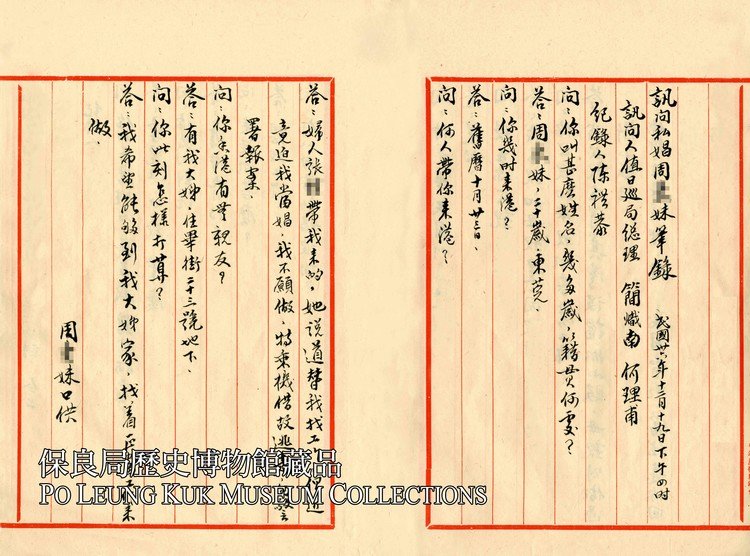 訊問私娼周 妹筆錄
民國卅六年十二月十九日下午四時
訊問人值日巡局總理 簡熾南 何理甫
紀錄人陳禩恭
問：你叫甚麽姓名，幾多歲，籍貫何處？
答：周 妹，二十歲，東莞、
問：你幾時来港？
答：舊曆十月廿三日、
問：何人帶你来港？
答：婦人張 帶我来的，她説道替我找工作
竟迫我當娼，我不願做，特乘機借故逃
署報案、
問：你香港有無親友？
答：有我大姊，住畢街二十三號地下、
問：你此刻怎樣打算？
答：我希望能够到我大姊家，找着 来
做、
周 妹口供
保良局歷史博物館藏品
PO LEUNG KUK MUSEUM COLLECTIONS